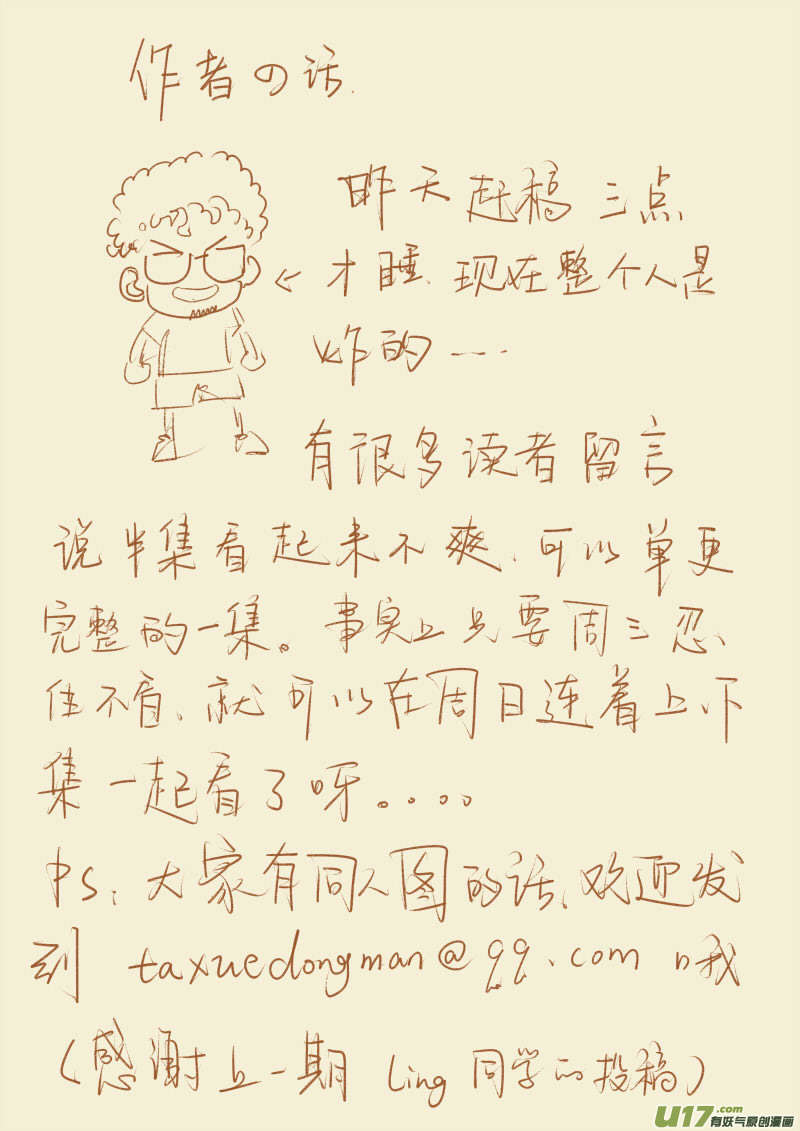 作者の话.
昨天赶稿三点
才睡.现在整个人是
炸的……
有很多读者留言
说半集看起来不爽、可以单更
完整的一集。事实上只要周三忍
住不看、就可以在周日连着上下
集一起看了呀。。。。
PS:大家有同人图的话、欢迎发
到 taxuedongman@qq.com 哦
(感谢上一期 Ling 同学的投稿)
U17.com
有妖气原创漫画